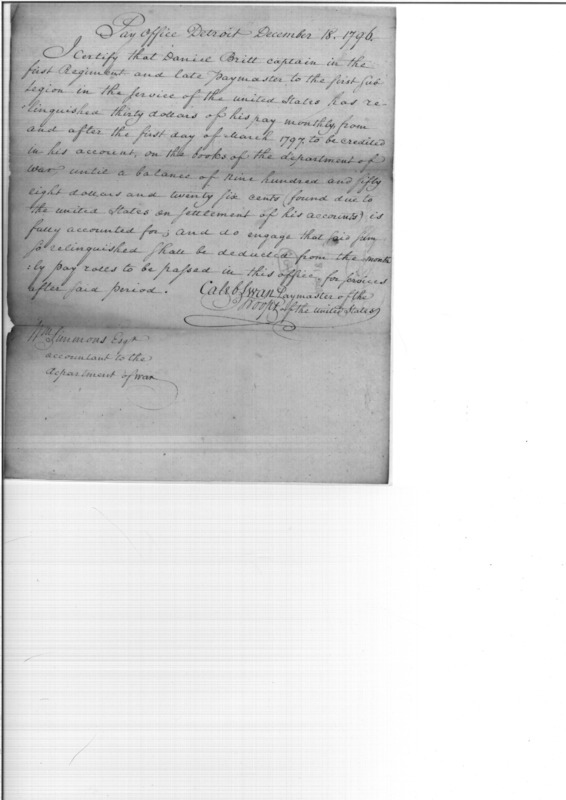 Pay Office Detroit December 18. 1796.
I certify that Daniel Britt captain in the
first Regiment and late paymaster to the first sub
Legion in the service of the united States has re-
-linquished thirty dollars of his pay monthly, from
and after the first day of March 1797, to be credited
in his account, on the books of the department of
war until a balance of nine hundred and fifty
eight dollars and twenty six cents (found due to
the united States on settlement of his accounts) is
fully accounted for; and do engage that said sum
so relinquished shall be deducted from the month
-ly pay roles to be passed in this office for services
after said period.
Caleb Swan Paymaster of the
Troops of the united States
Wm Simmons Esqr
accountant to the
department of war